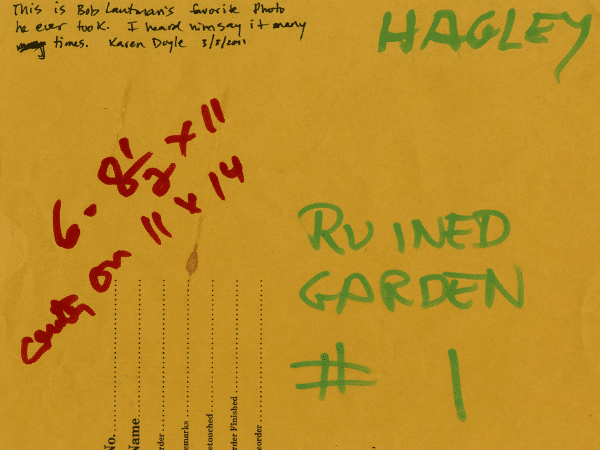 This is Bob Lautman's favorite photo
he ever took. I heard him say it many
times. Karen Doyle 3/8/2011
HAGLEY
6 - 8 1/2 x 11
on 11 x 14
RUINED
GARDEN
# 1
No.
Name
rder
emarks
etouched
rder Finished
eorder